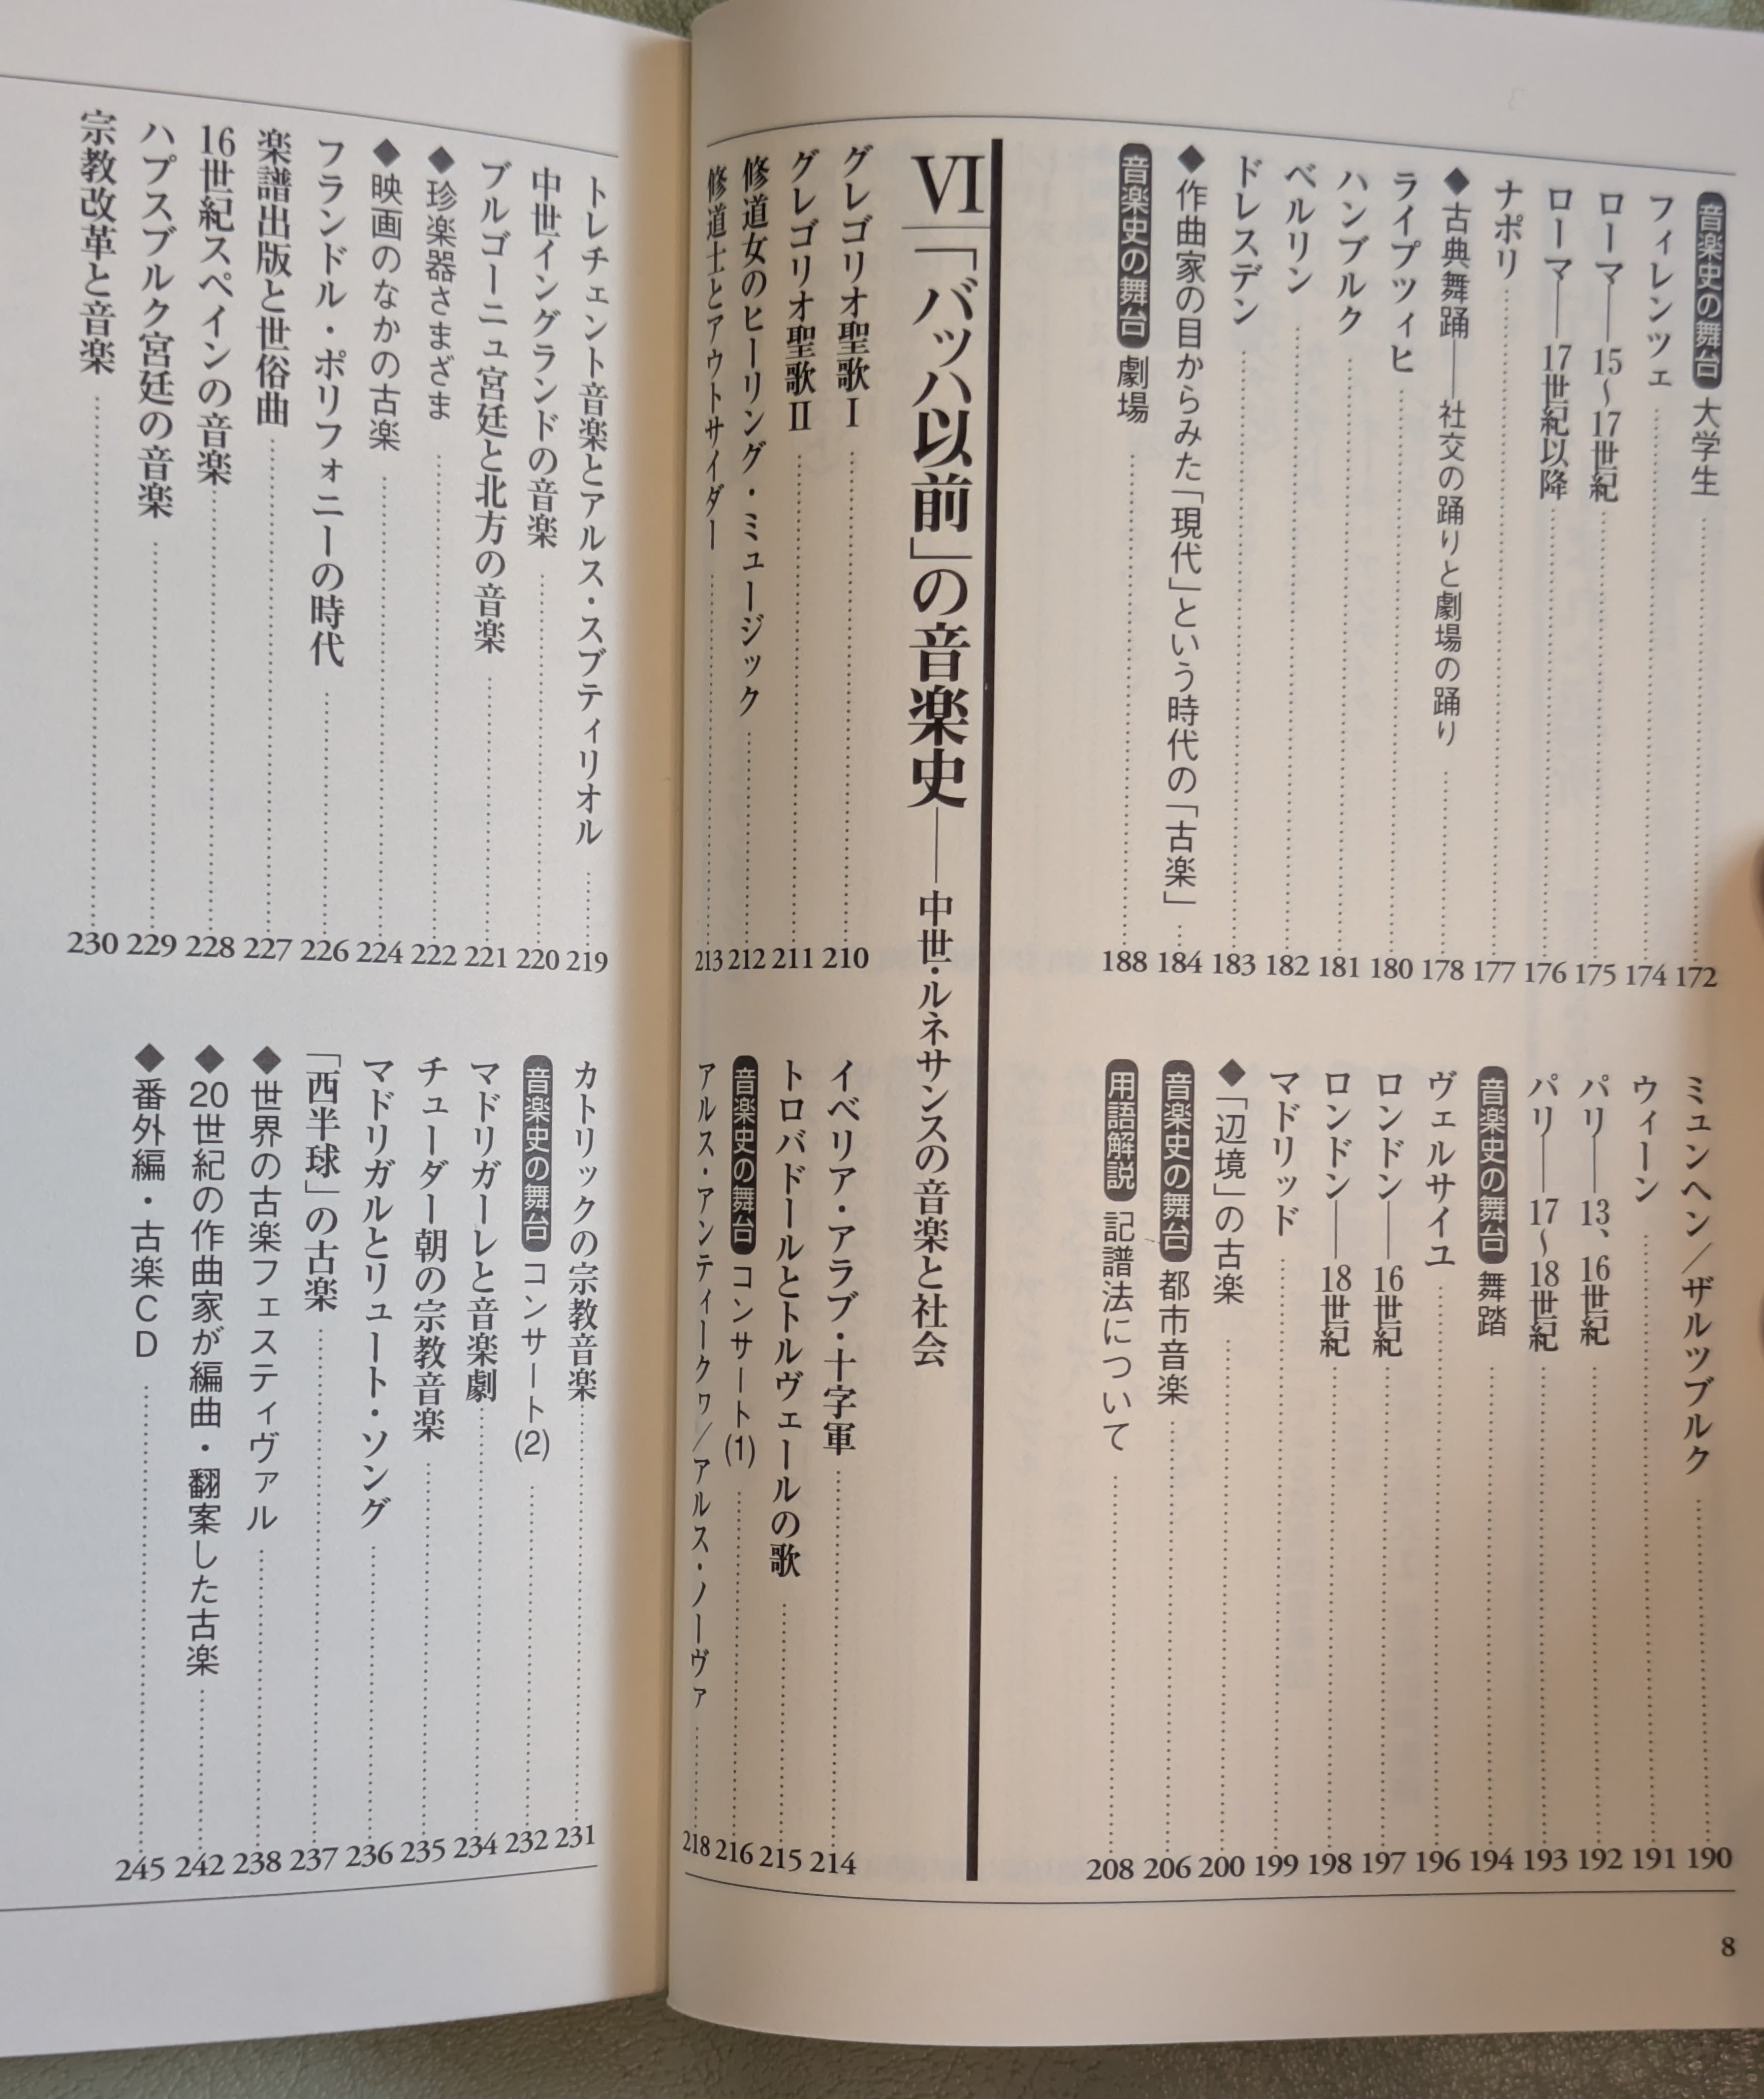 音楽史の舞台 大学生 172
フィレンツェ 174
ローマ――15〜17世紀 175
ローマ――17世紀以降 176
ナポリ 177
◆古典舞踊――社交の踊りと劇場の踊り 178
ライプツィヒ 180
ハンブルク 181
ベルリン 182
ドレスデン 183
◆作曲家の目からみた「現代」という時代の「古楽」 184
音楽史の舞台 劇場 188
ミュンヘン/ザルツブルク 190
ウィーン 191
パリ――13、16世紀 192
パリ――17〜18世紀 193
音楽史の舞台 舞踏 194
ヴェルサイユ 196
ロンドン――16世紀 197
ロンドン――18世紀 198
マドリッド 199
◆「辺境」の古楽 200
音楽史の舞台 都市音楽 206
用語解説 記譜法について 208
Ⅵ 「バッハ以前」の音楽史――中世・ルネサンスの音楽と社会
グレゴリオ聖歌Ⅰ 210
グレゴリオ聖歌Ⅱ 211
修道女のヒーリング・ミュージック 212
修道士とアウトサイダー 213
イベリア・アラブ・十字軍 214
トロバドールとトルヴェールの歌 215
音楽史の舞台 コンサート(1) 216
アルス・アンティークヮ/アルス・ノーヴァ 218
8
トレチェント音楽とアルス・スブティリオル 219
中世イングランドの音楽 220
ブルゴーニュ宮廷と北方の音楽 221
◆珍楽器さまざま 222
◆映画のなかの古楽 224
フランドル・ポリフォニーの時代 226
楽譜出版と世俗曲 227
16世紀スペインの音楽 228
ハプスブルク宮廷の音楽 229
宗教改革と音楽 230
カトリックの宗教音楽 231
音楽史の舞台 コンサート(2) 232
マドリガーレと音楽劇 234
チューダー朝の宗教音楽 235
マドリガルとリュート・ソング 236
「西半球」の古楽 237
◆世界の古楽フェスティヴァル 238
◆20世紀の作曲家が編曲・翻案した古楽 242
◆番外編・古楽CD 245